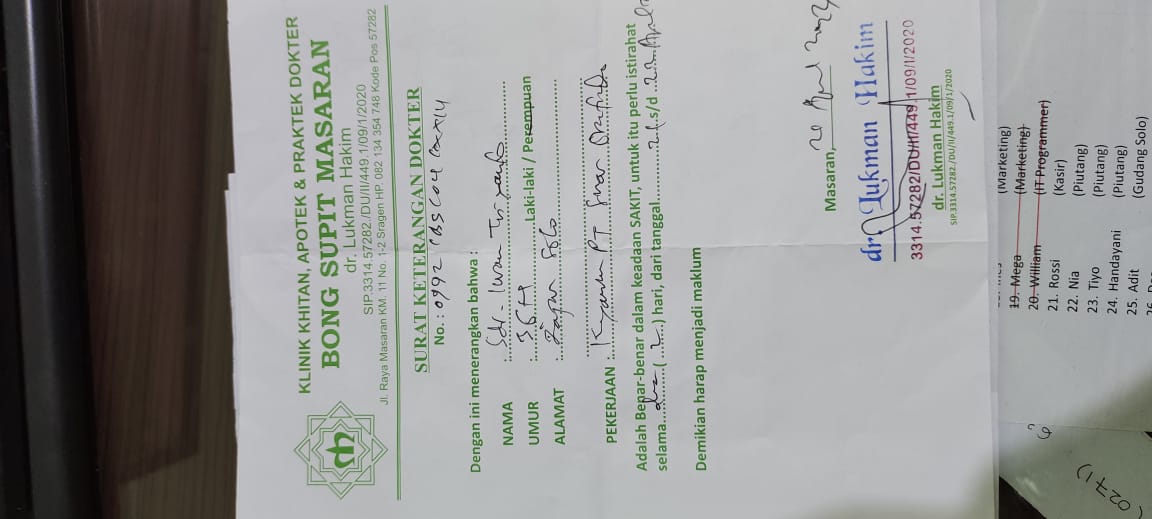 KLINIK KHITAN, APOTEK & PRAKTEK DOKTER
BONG SUPIT MASARAN
dr. Lukman Hakim
SIP.3314.57282./DU/II/449.1/09/1/2020
Jl. Raya Masaran KM. 11 No. 1-2 Sragen HP. 082 134 354 748 Kode Pos 57282
SURAT KETERANGAN DOKTER
No. : 0992
Dengan ini menerangkan bahwa :
NAMA : Sdr. Iwan
UMUR : 36 H Laki-laki / Perempuan
ALAMAT :
PEKERJAAN : PT Sinar
Adalah Benar-benar dalam keadaan SAKIT, untuk itu perlu istirahat
selama dua ( 2 ) hari, dari tanggal 21 s/d 22 April
Demikian harap menjadi maklum
Masaran, 20 April
dr. Lukman Hakim
3314.57282/DU/II/449.1/09/I/2020
dr. Lukman Hakim
SIP.3314.57282./DU/II/449.1/09/1/2020
(Marketing)
19. Mega (Marketing)
20. William (IT Programmer)
21. Rossi (Kasir)
22. Nia (Piutang)
23. Tiyo (Piutang)
24. Handayani (Piutang)
25. Adit (Gudang Solo)
(0271)